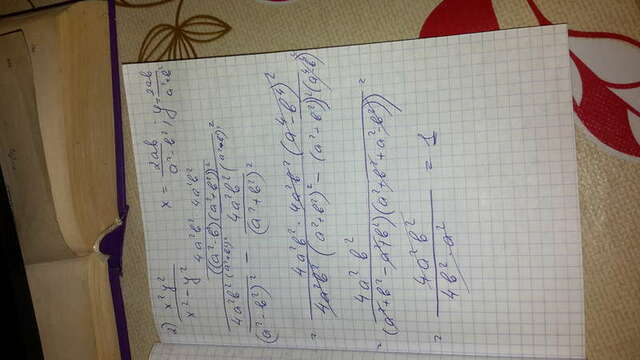 2) x²y² / x² - y²   x = 2ab / a² - b² ; y = 2ab / a² + b²
4a²b² · 4a²b² / ((a² - b²)(a² + b²))²
4a²b² (a² + b²)² / (a² - b²)² - 4a²b² (a² - b²)² / (a² + b²)²
= 4a²b² · 4a²b² (a⁴ - b⁴)² / 4a²b² (a² + b²)² - (a² + b²)² (a⁴ - b⁴)²
= 4a² b² / (a² + b² - a² + b²)(a² + b² + a² - b²)
= 4a² b² / 4b² · a² = 1